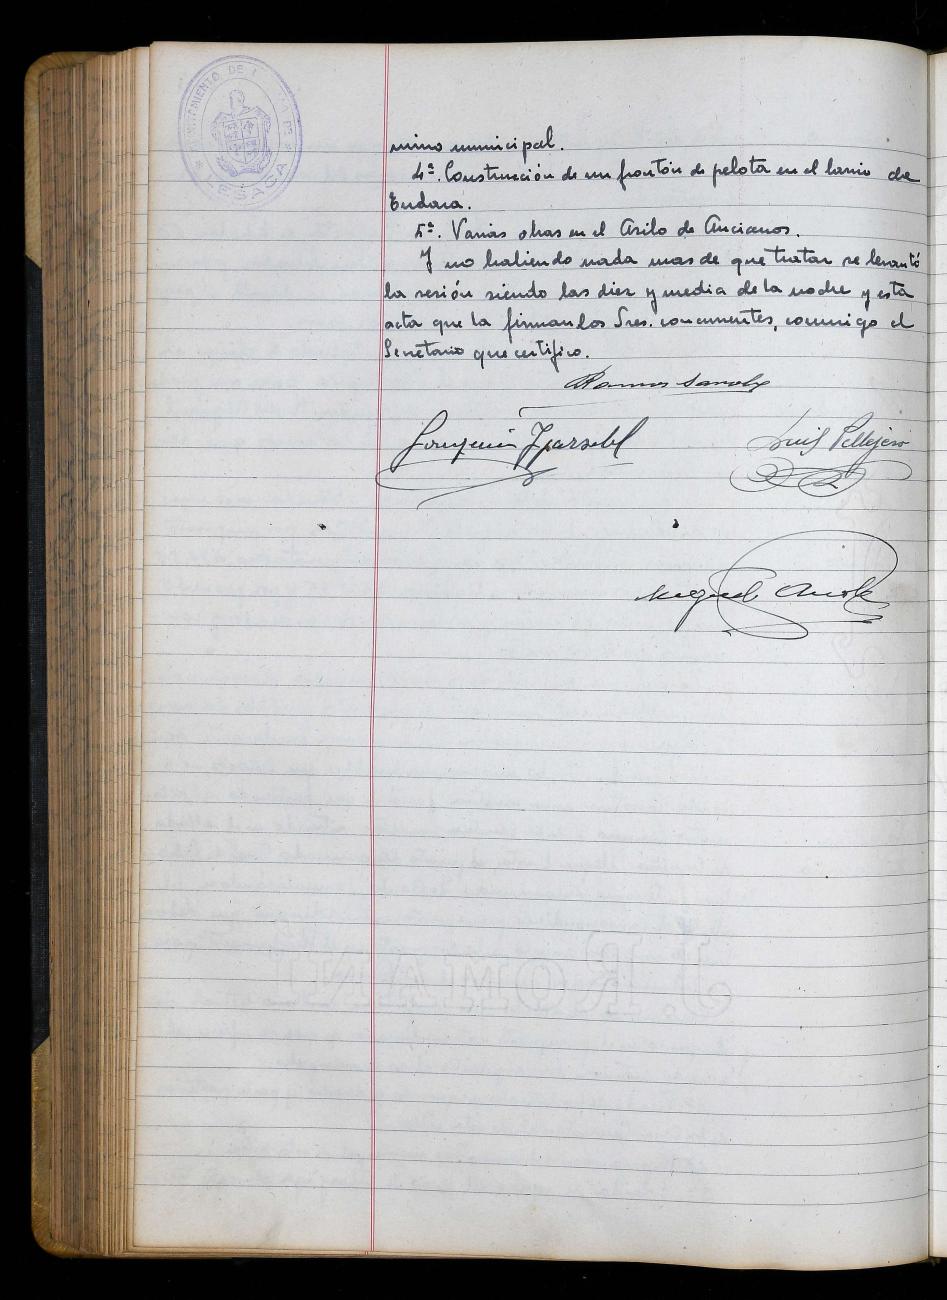 AYUNTAMIENTO DE
LESACA
mino municipal.
4ª. Construcción de un frontón de pelota en el barrio de
Endara.
5ª. Varias obras en el Asilo de Ancianos.
Y no habiendo nada mas de que tratar se levantó
la sesión siendo las diez y media de la noche y esta
acta que la firman los Sres. concurrentes, conmigo el
Secretario que certifico.
Ramon
Joaquin
Luis Pellejero
Miguel
J. ROMANI